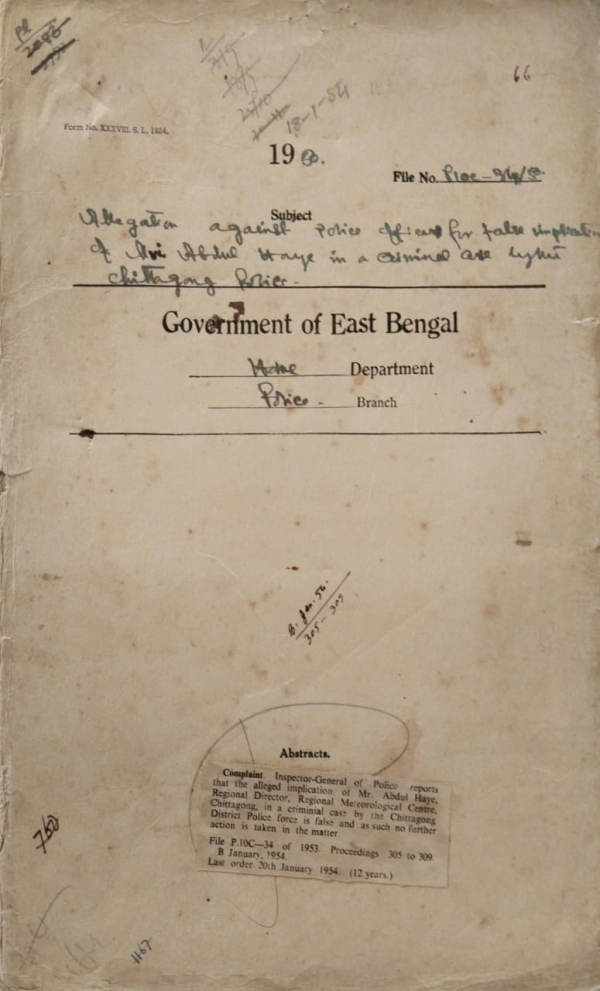 2046
66
18-1-54
Form No. XXXVIII. S. I., 1924.
19
File No. P10c-34/53
Subject
Allegation against police officers for false implication
of Mr Abdul Haye in a criminal case by the
Chittagong Police.
Government of East Bengal
Home Department
Police Branch
B. Jan. 54.
305-309
Abstracts.
Complaint Inspector-General of Police reports
that the alleged implication of Mr. Abdul Haye,
Regional Director, Regional Meteorological Centre,
Chittagong, in a criminial case by the Chittagong
District Police force is false and as such no further
action is taken in the matter.
File P.10C—34 of 1953 Proceedings 305 to 309
B January, 1954.
Last order 20th January 1954. (12 years.)
750
1167